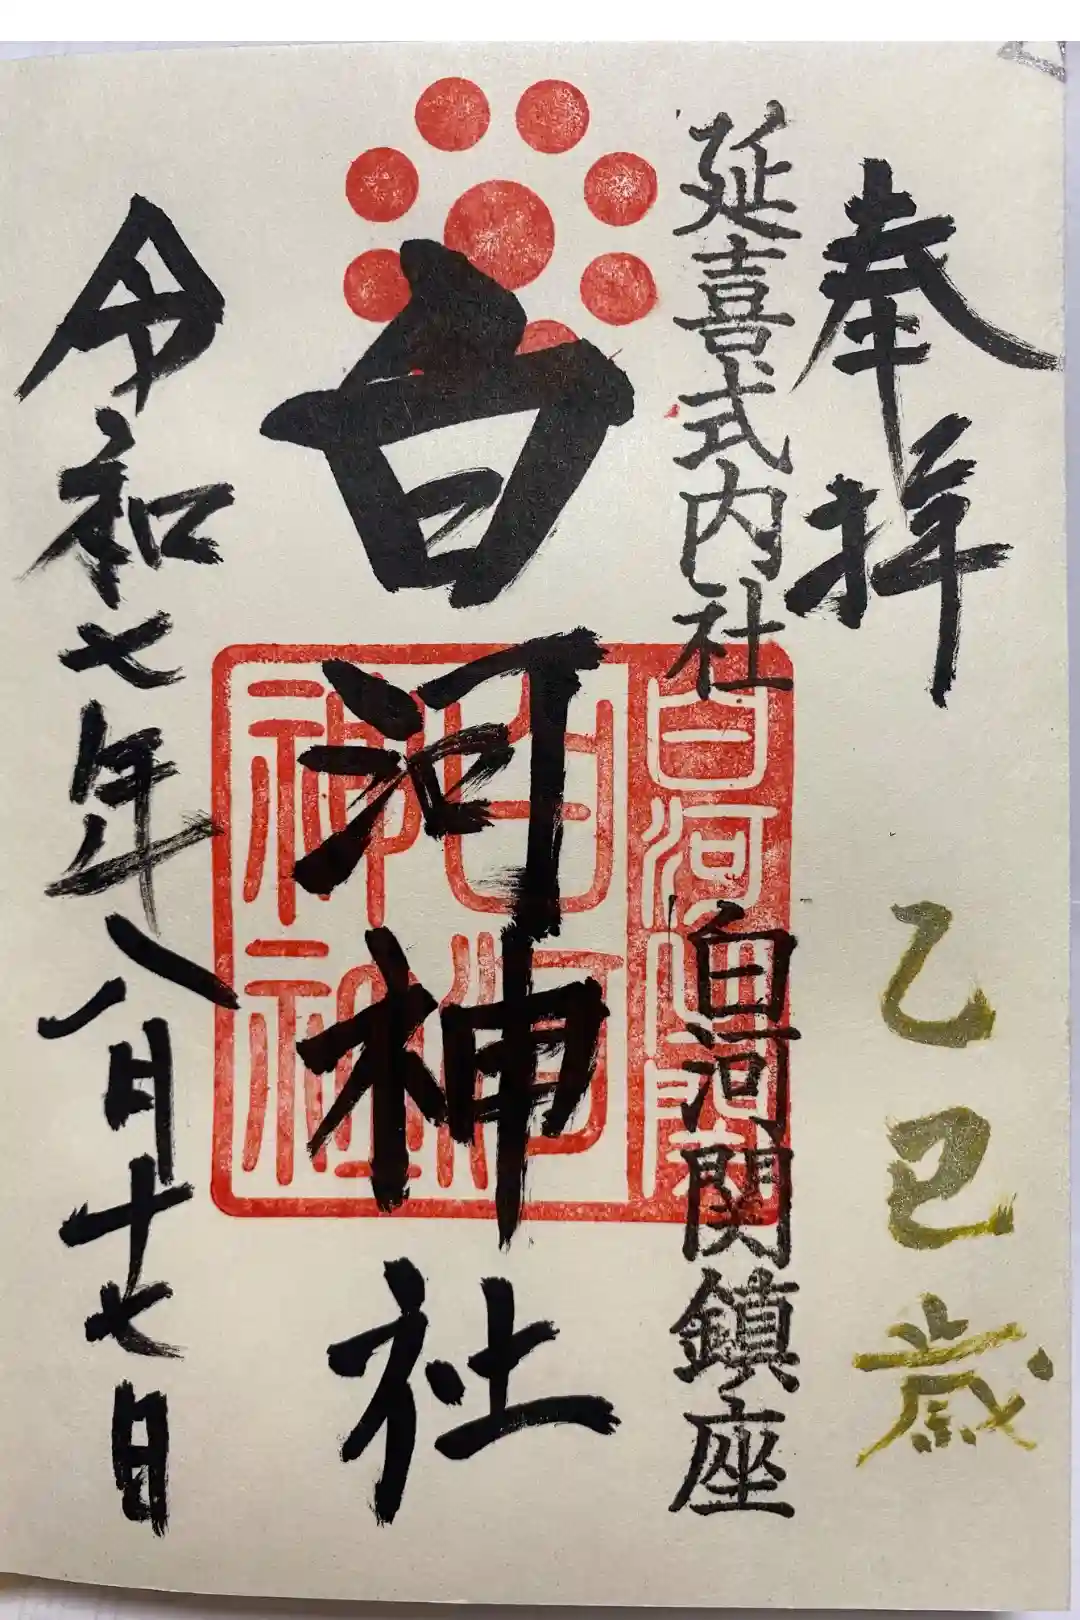 奉拝
乙巳歳
延喜式内社
白河関鎮座
白河関
白河
神社
白河神社
令和七年八月十七日